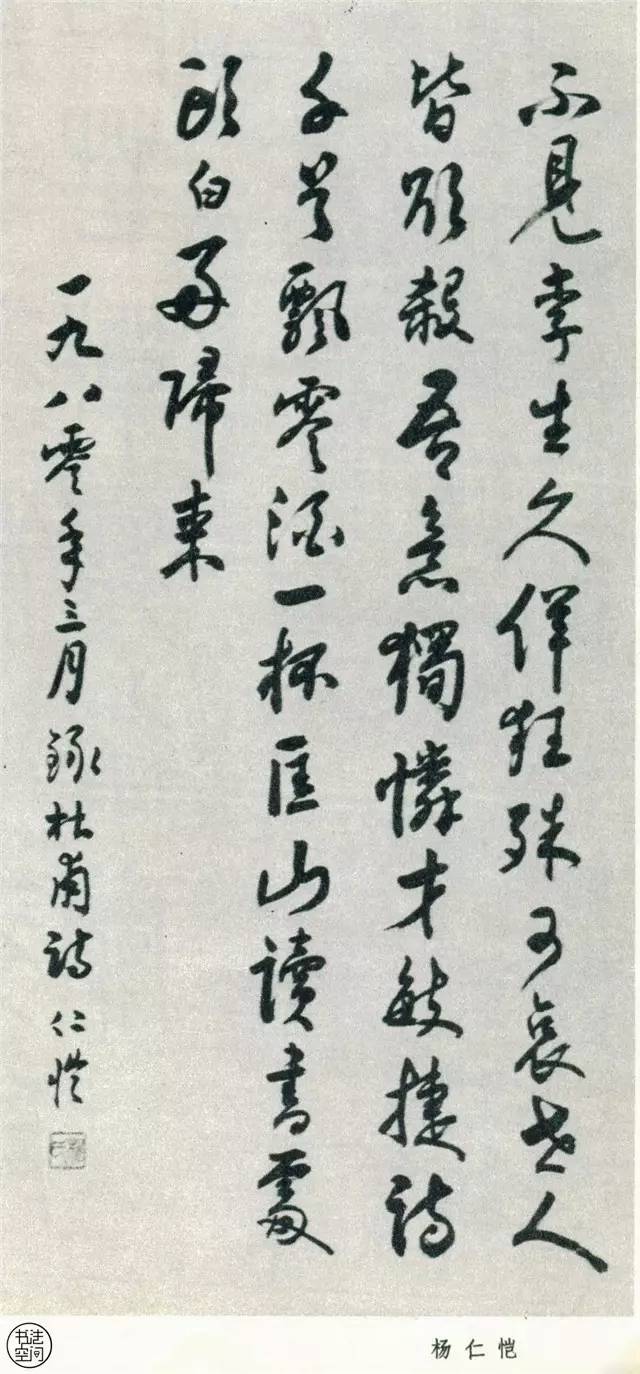 不見李生久佯狂殊可哀世人
皆欲殺吾意獨憐才敏捷詩
千首飄零酒一杯匡山讀書處
頭白好歸來
一九八零年三月錄杜甫詩仁愷
杨仁恺
书法空间